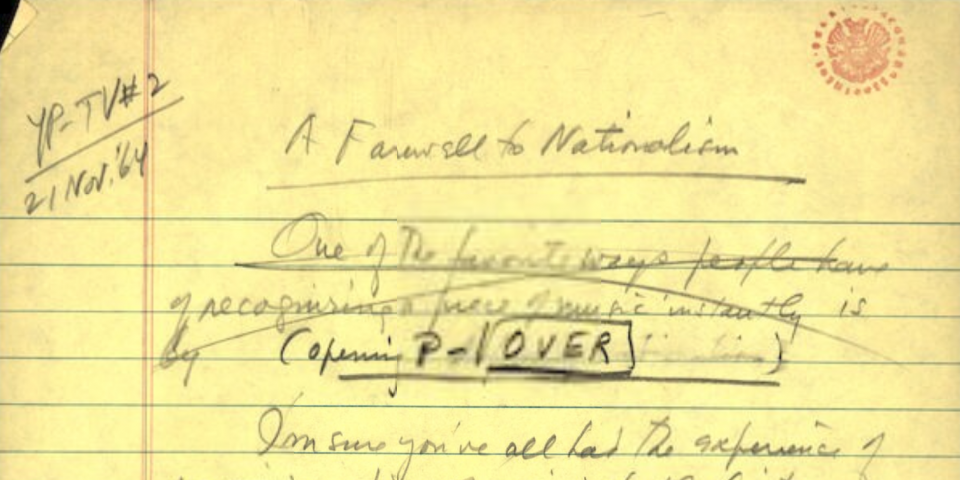 YP-TV#2
21 NOV. '64
A Farewell to Nationalism
One of the favorite ways people have
of recognizing a piece of music instantly is
by (opening P-1 OVER )
I'm sure you've all had the experience of